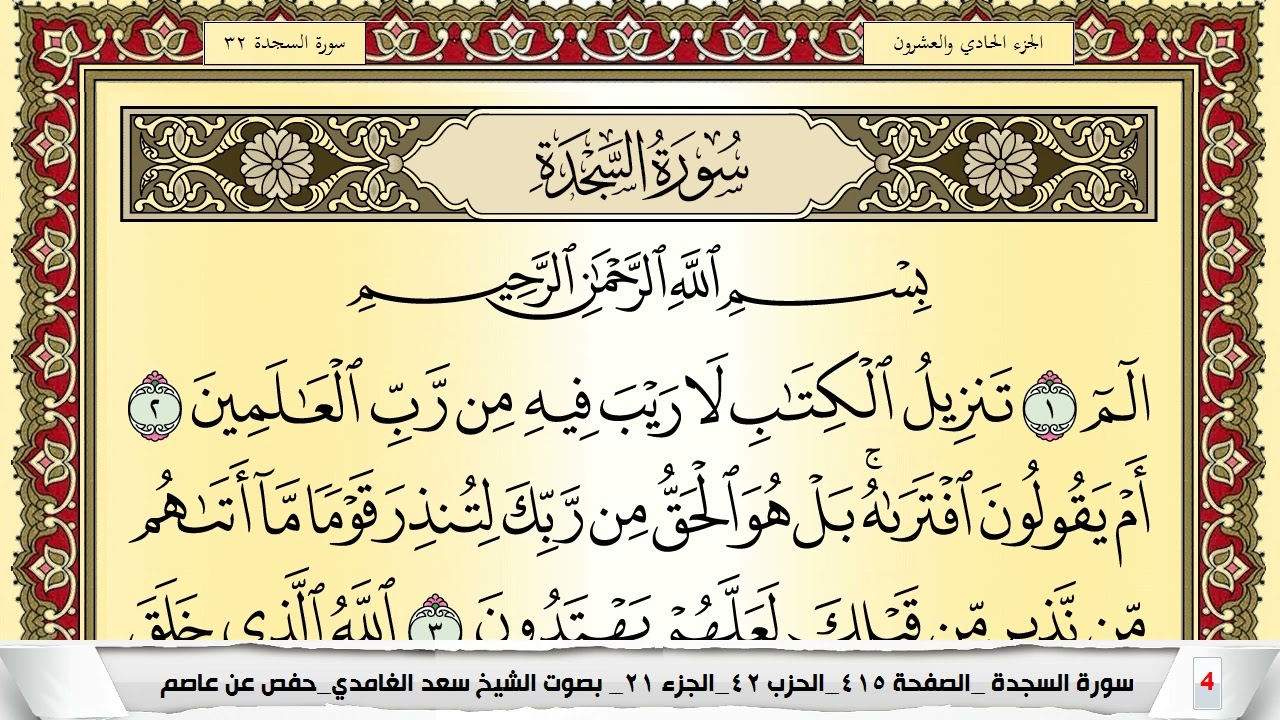 الجزء الحادي والعشرون
سورة السجدة ٣٢
سُورَةُ السَّجْدَةِ
بِسْمِ ٱللَّهِ ٱلرَّحْمَٰنِ ٱلرَّحِيمِ
الٓمٓ ١ تَنزِيلُ ٱلْكِتَٰبِ لَا رَيْبَ فِيهِ مِن رَّبِّ ٱلْعَٰلَمِينَ ٢
أَمْ يَقُولُونَ ٱفْتَرَىٰهُ ۚ بَلْ هُوَ ٱلْحَقُّ مِن رَّبِّكَ لِتُنذِرَ قَوْمًا مَّآ أَتَىٰهُم
مِّن نَّذِيرٍ مِّن قَبْلِكَ لَعَلَّهُمْ يَهْتَدُونَ ٣ ٱللَّهُ ٱلَّذِى خَلَقَ
4 سورة السجدة _الصفحة ٤١٥_الحزب ٤٢_الجزء ٢١_ بصوت الشيخ سعد الغامدي_حفص عن عاصم